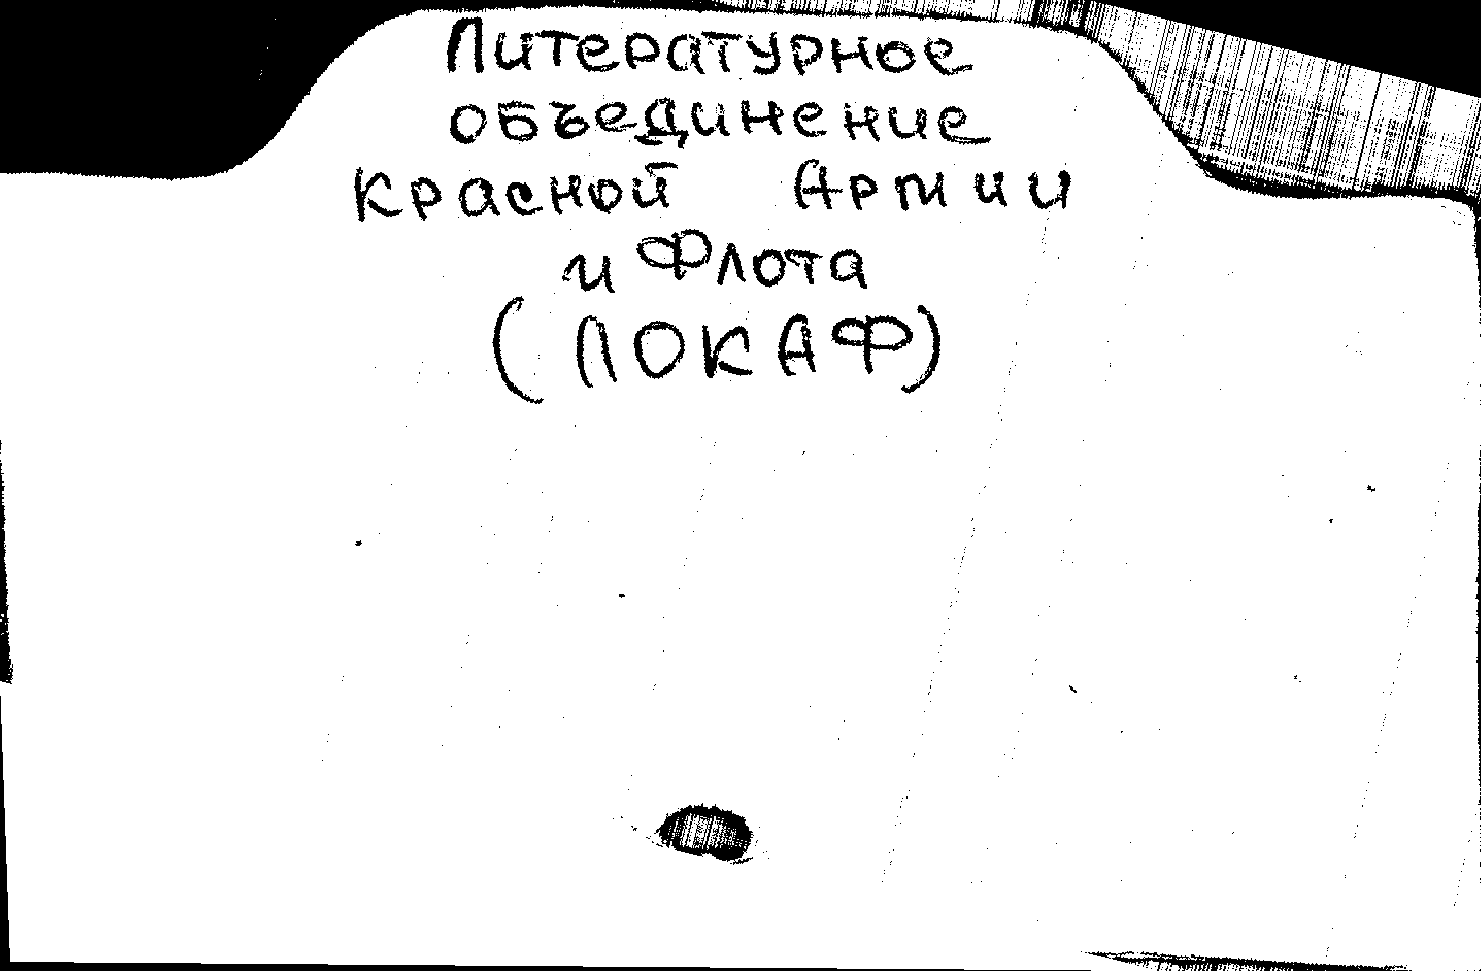 Литературное
объединение
Красной Армии
и Флота
(ЛОКАФ)